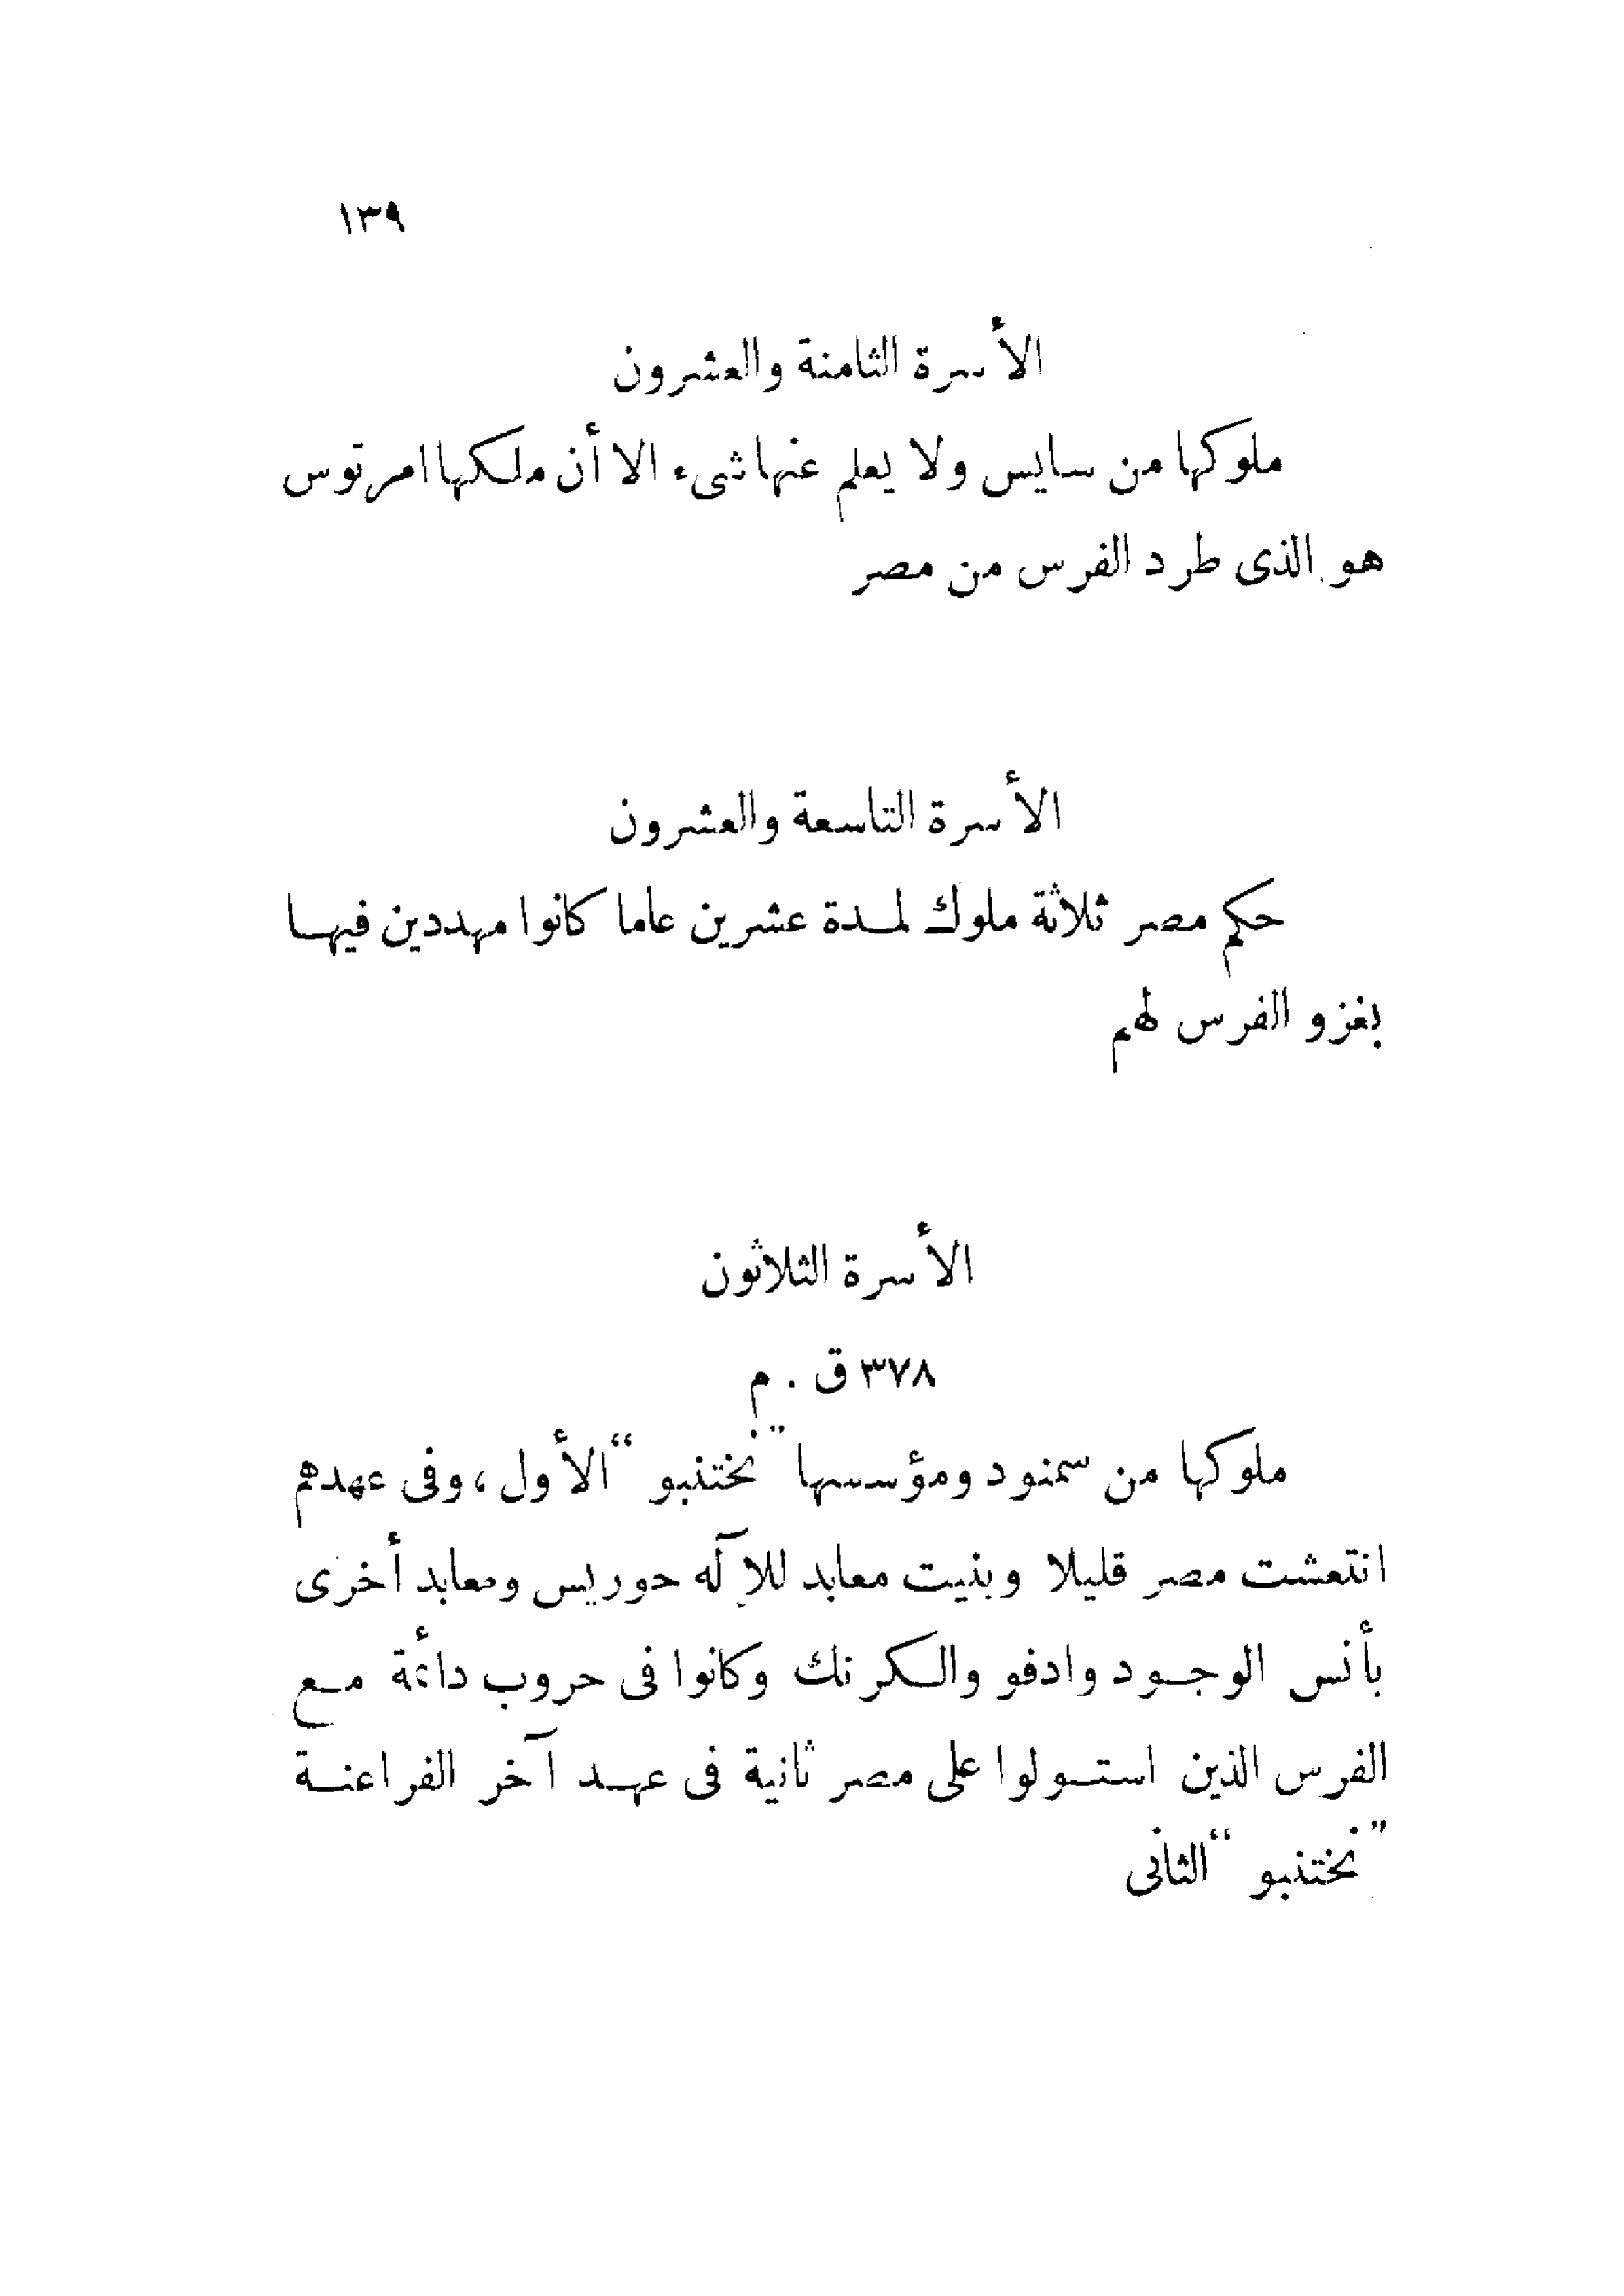 ١٣٩
الأسرة الثامنة والعشرون
ملوكها من سايس ولا يعلم عنها شىء الا أن ملكها امرتوس
هو الذى طرد الفرس من مصر
الأسرة التاسعة والعشرون
حكم مصر ثلاثة ملوك لمدة عشرين عاما كانوا مهددين فيها
بغزو الفرس لهم
الأسرة الثلاثون
٣٧٨ ق . م
ملوكها من سمنود ومؤسسها "نختنبو" الأول، وفى عهدهم
انتعشت مصر قليلا وبنيت معابد للإآله حوريس ومعابد أخرى
بأنس الوجود وادفو والكرنك وكانوا فى حروب دائمة مع
الفرس الذين استولوا على مصر ثانية فى عهد آخر الفراعنة
"نختنبو" الثانى